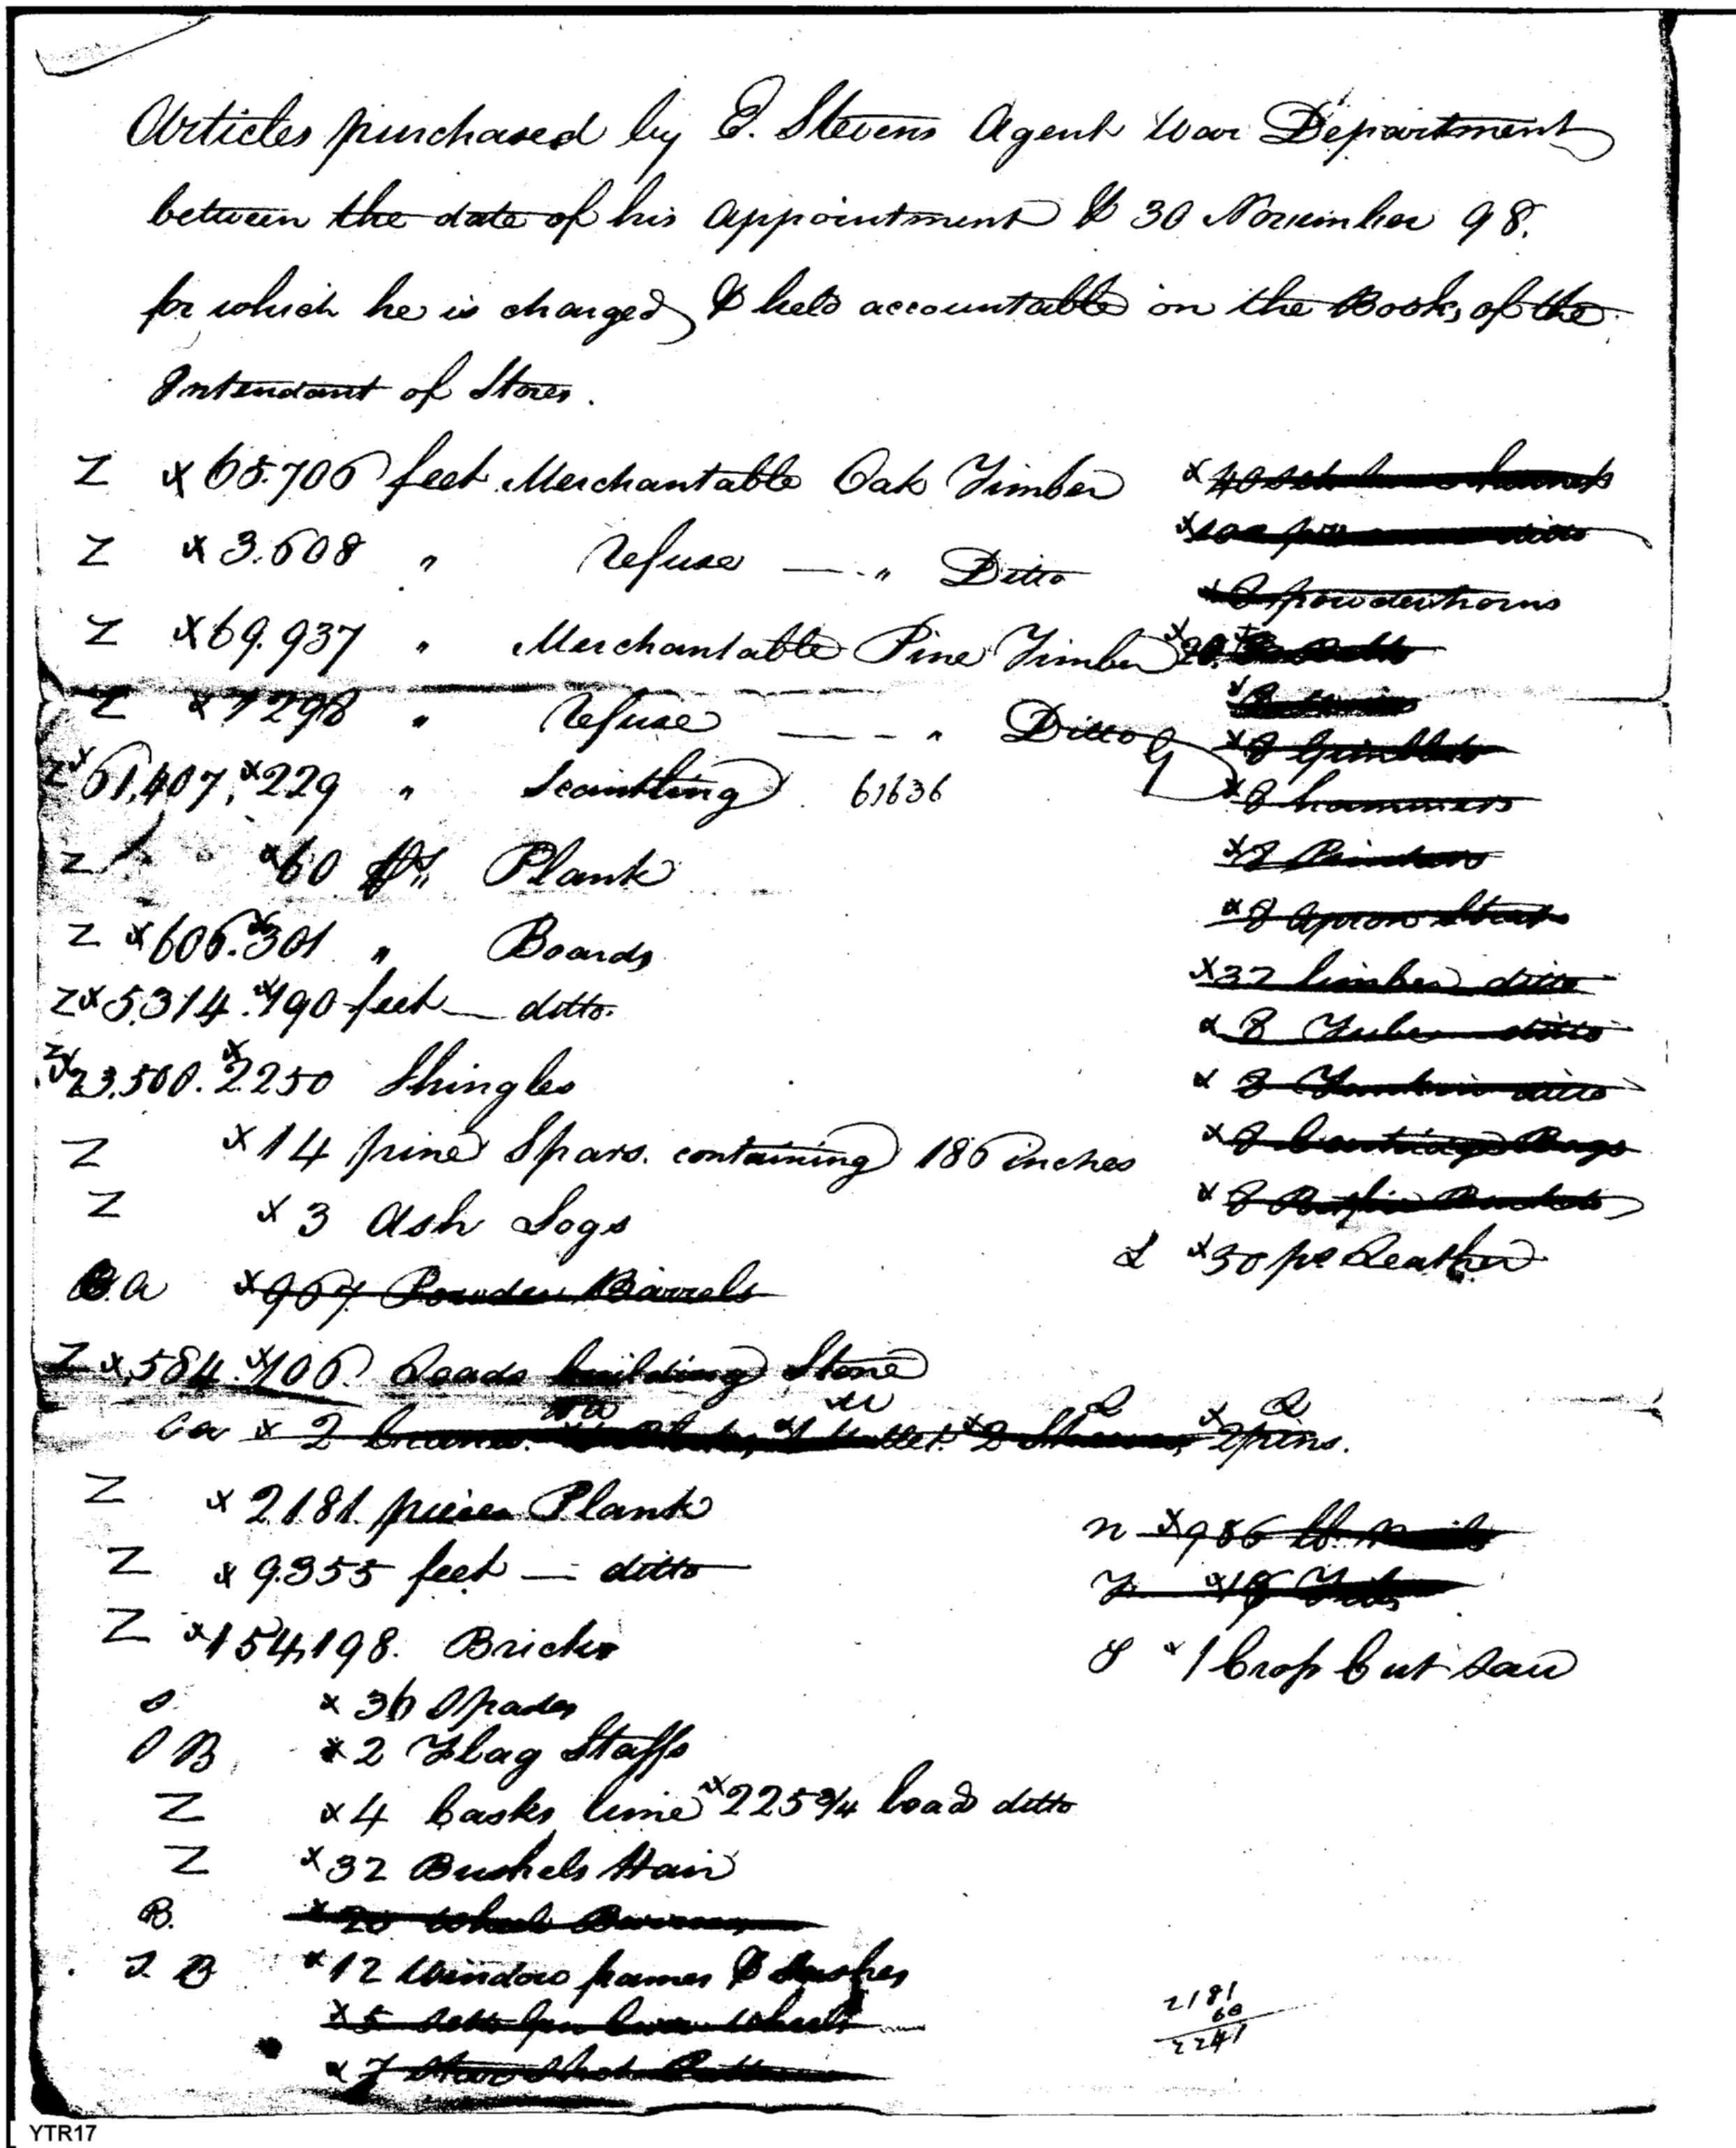 Articles purchased by E. Stevens Agent War Department
between the date of his appointment & 30 November 98.
for which he is charged & held accountable on the Books of the
Intendant of Stores.
Z x 65.706 feet Merchantable Oak Timber
Z x 3.608 " refuse — " Ditto
Z x 69.937 " Merchantable Pine Timber
Z x 7298 " refuse — - - " Ditto
Z x 61,407, x 229 " Scantling 61636
Z x 60 ps Plank
Z x 606. x 301 " Boards
Z x 5,314. x 190 feet — ditto.
Z x 23,500. x 2250 Shingles
Z x 14 pine Spars. containing 186 inches
Z x 3 Ash Logs
B.a x 967 Powder Barrels
Z x 584. x 106. Loads building Stone
Ca x 2 x 2 x 2 pins.
Z x 2181 pieces Plank
Z x 9.355 feet — ditto
Z x 154,198. Bricks
S. x 36 Spades
S B x 2 Flag Staffs
Z x 4 Casks lime x 225 3/4 load ditto
Z x 32 Bushels Hair
B. x 20 Wheel Barrows
S B x 12 Window frames & Sashes
x 5 Wheels
x 7
x 40
x ditto
x 8 powderhorns
x 20.
x 8 Gimblets
x 8 hammers
x 8
x 8 apron
x 32 limber ditto
x 8 Tube ditto
x 8 ditto
x 8 Cartridge Bags
x 8
L x 30 ps Leather
n x 986 lb. nails
x 18
S x 1 Crop Cut Saw
2181
60
2241
YTR17